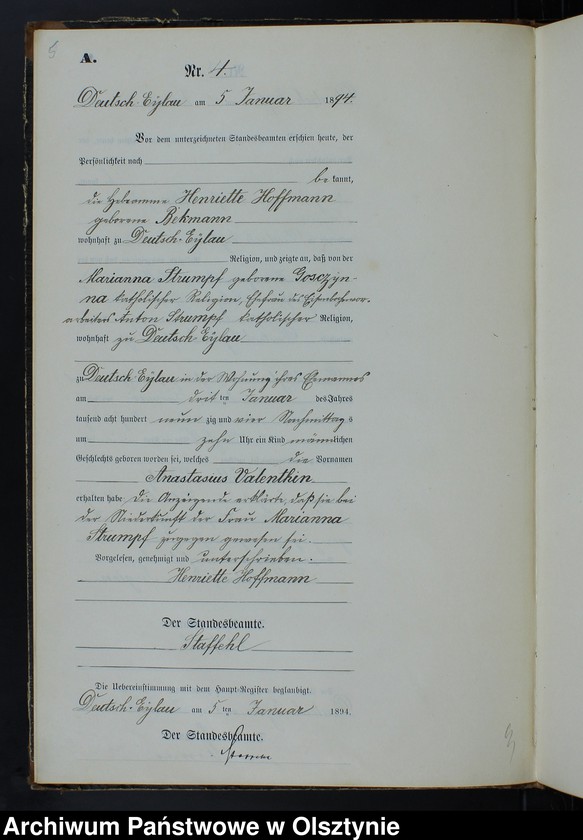 5
A.
Nr. 4.
Deutsch-Eylau am 5 Januar 1894.
Vor dem unterzeichneten Standesbeamten erschien heute, der
Persönlichkeit nach
bekannt,
die Hebamme Henriette Hoffmann
geborene Bekmann
wohnhaft zu Deutsch-Eylau
Religion, und zeigte an, daß von der
Marianna Strumpf geborene Gosczyn-
na katholischer Religion, Ehefrau des
arbeiters Anton Strumpf katholischer Religion,
wohnhaft zu Deutsch Eylau
zu Deutsch-Eylau in der Wohnung ihres Ehemannes
am drit ten Januar des Jahres
tausend acht hundert neun zig und vier Nachmittag s
um zehn Uhr ein Kind männlichen
Geschlechts geboren worden sei, welches die Vornamen
Anastasius Valenthin
erhalten habe die Anzeigende erklärte, daß sie bei
der Niederkunft der Frau Marianna
Strumpf zugegen gewesen sei.
Vorgelesen, genehmigt und unterschrieben.
Henriette Hoffmann
Der Standesbeamte.
Staffehl
Die Uebereinstimmung mit dem Haupt-Register beglaubigt.
Deutsch-Eylau am 5 ten Januar 1894.
Der Standesbeamte.
Archiwum Państwowe w Olsztynie